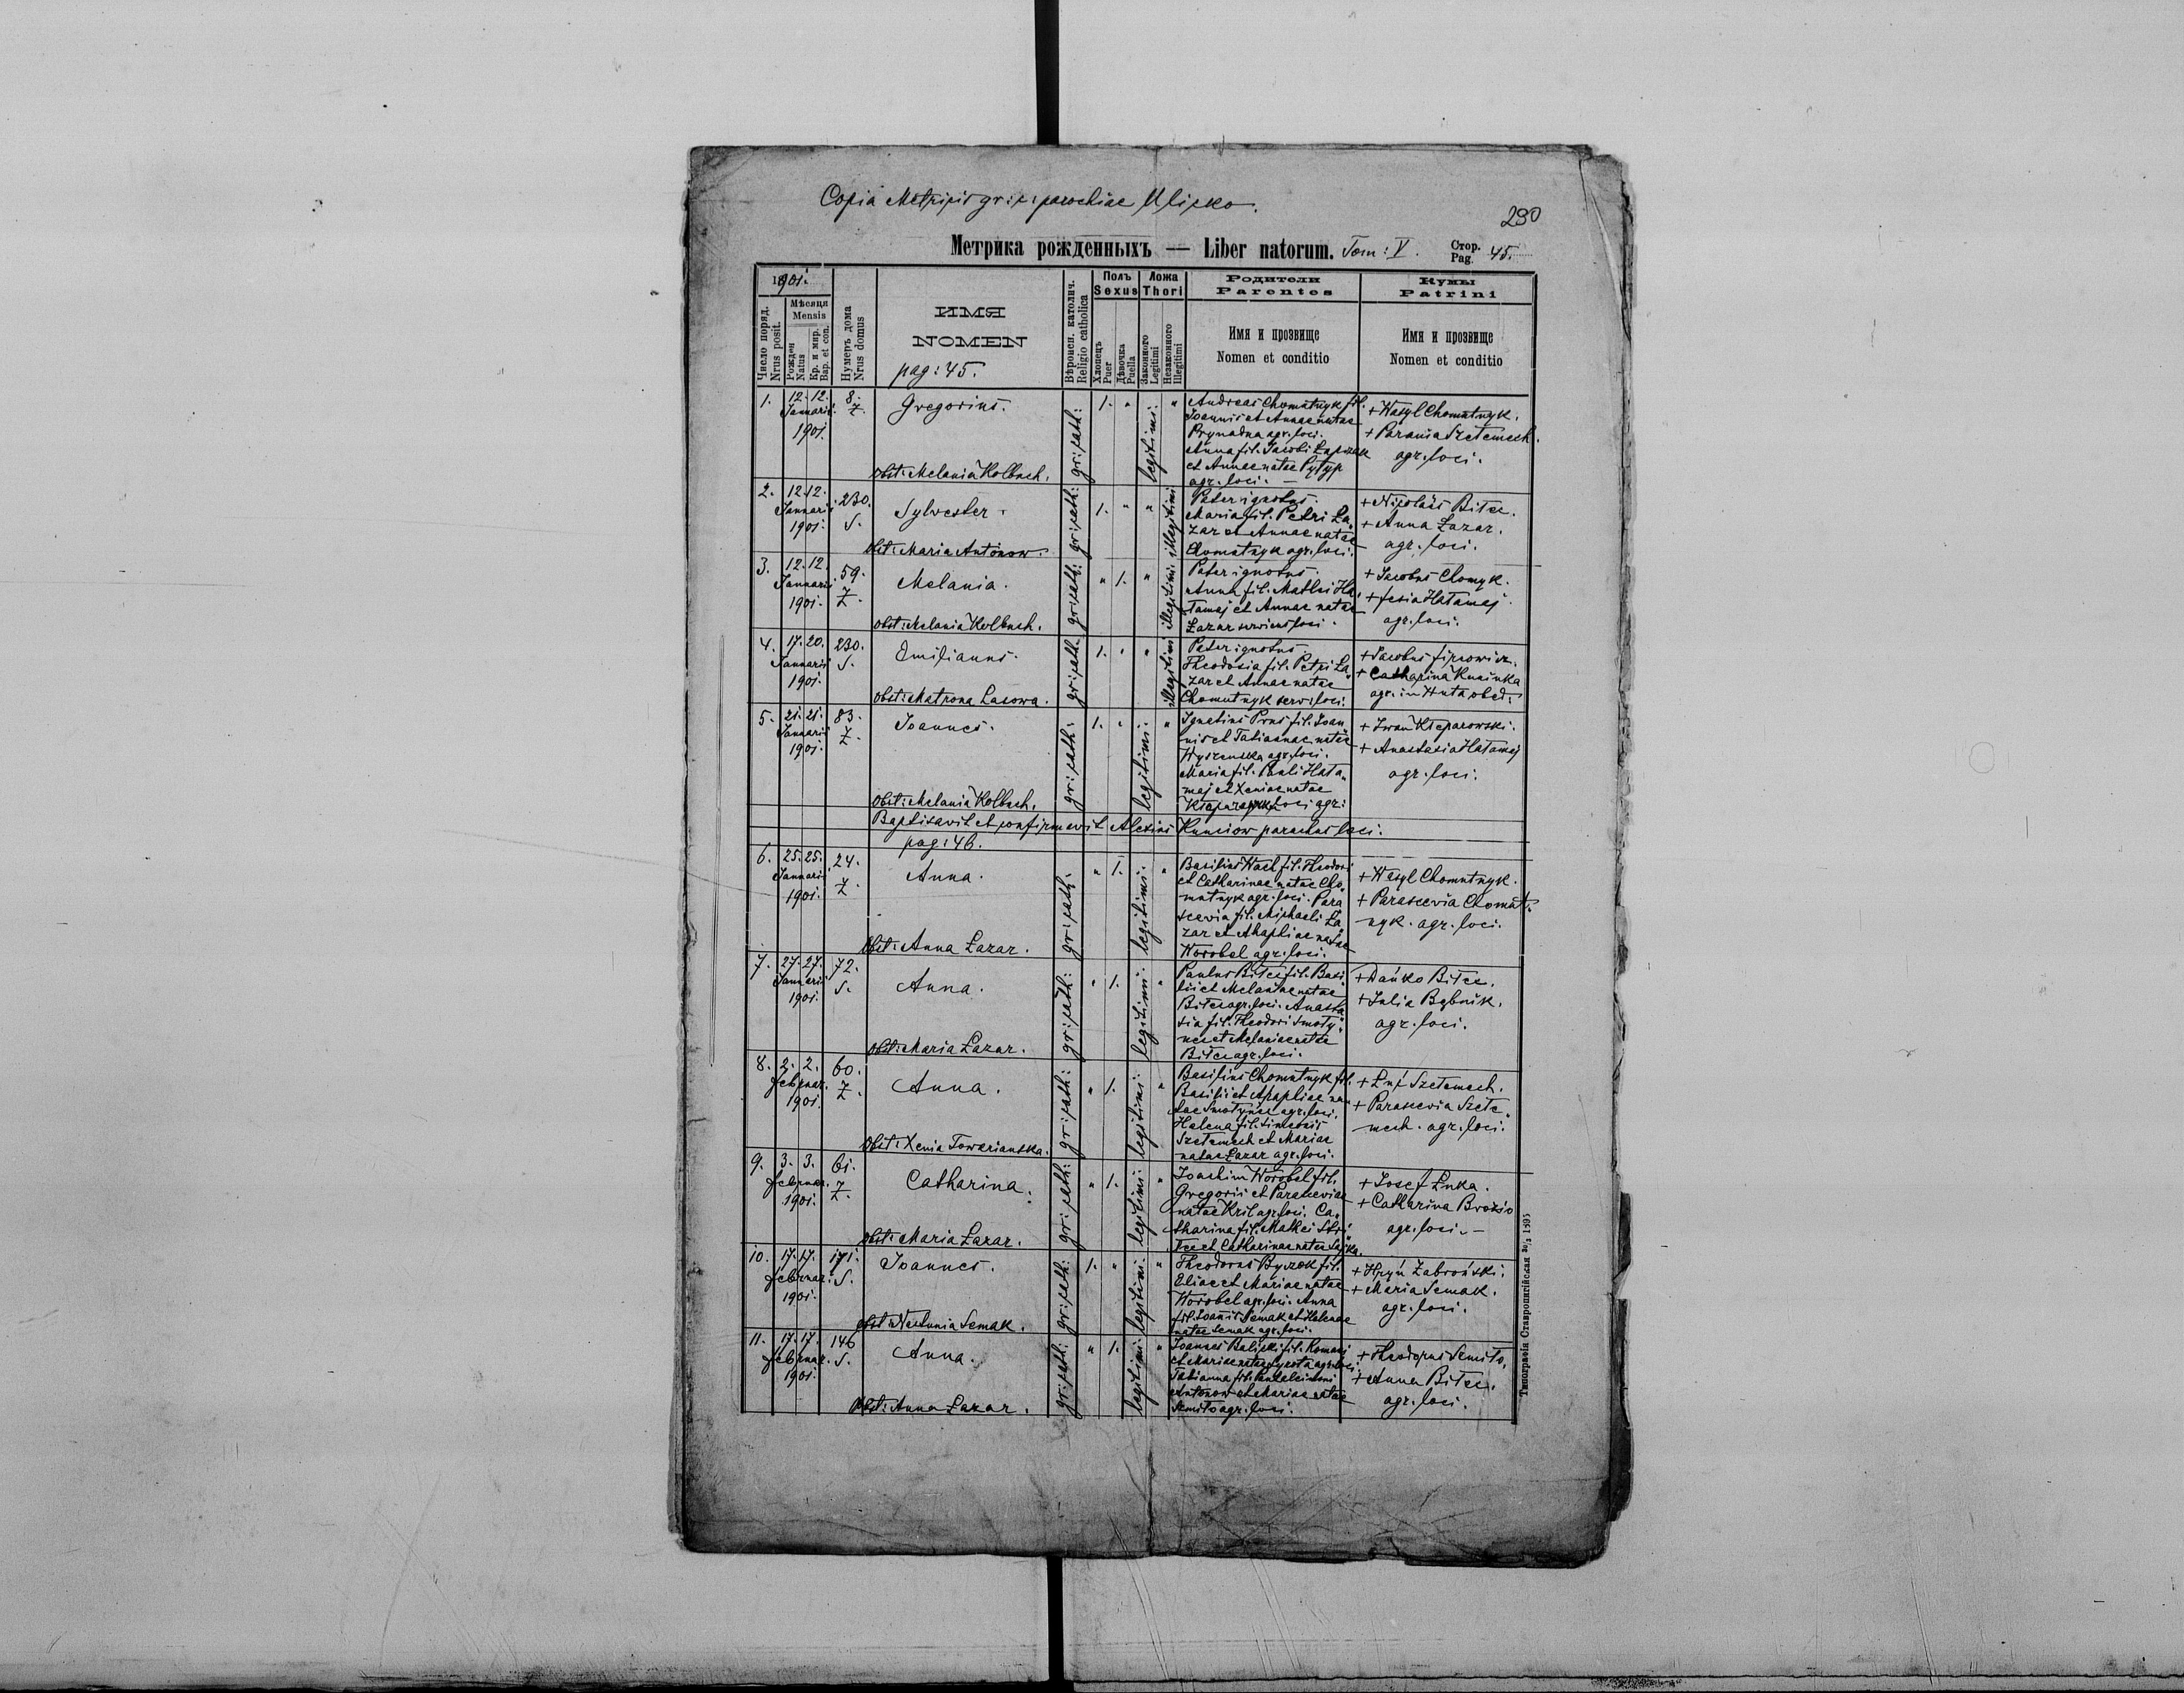 Copia Metricis gr: c: parochiae Ulicko.
230
Метрика рожденныхъ — Liber natorum. Tom: V.
Стор. Pag. 45.
1901.
Число поряд. Nrus posit.
Мѣсяця Mensis
Рожден Natus
Кр. и мир. Bap. et con.
Нумеръ дома Nrus domus
ИМЯ
NOMEN
pag: 45.
Вѣроисп. католич. Religio catholica
Полъ Sexus
Хлопецъ Puer
Дѣвочка Puella
Ложа Thori
Законного Legitimi
Незаконного Illegitimi
Родители
Parentes
Имя и прозвище
Nomen et conditio
Кумы
Patrini
Имя и прозвище
Nomen et conditio
1. 12. 12. Januarii 1901. 8. Z. Gregorius. gr: cath: 1. " legitimi. "
Obst: Melania Kolbuch.
Andreas Chomutnyk fil.
Joannis et Annae natae
Prynadna agr. loci.
Anna fil. Jacobi
et Annae natae Pytyp
agr. loci. —
+ Wasyl Chomutnyk.
+ Parania Szetemech.
agr. loci.
2. 12. 12. Januarii 1901. 230. S. Sylvester. gr: cath: 1. " " illegitimi
Obst: Maria Antonow.
Pater ignotus.
Maria fil. Petri Ła„
zar et Annae natae
Chomutnyk agr. loci.
+ Nicolaus Bitce.
+ Anna Łazar.
agr. loci.
3. 12. 12. Januarii 1901. 59. Z. Melania. gr: cath: " 1. " illegitimi
Obst: Melania Kolbuch.
Pater ignotus.
Anna fil. Mathei Ha„
tamaj et Annae natae
Łazar serviens loci.
+ Jacobus Chomyk.
+ Hatamaj.
agr. loci.
4. 17. 20. Januarii 1901. 230. S. Emilianus. gr: cath. 1. " " illegitimi
Obst: Matrona Lasowa.
Pater ignotus
Theodosia fil. Petri Ła„
zar et Annae natae
Chomutnyk serv. loci.
+ Jacobus
+ Catharina
agr. in Huta obed.
5. 21. 21. Januarii 1901. 83. Z. Joannes. gr: cath: 1. " legitimi. "
Obst: Melania Kolbuch.
Ignatius Prus fil. Joan„
nis et Tatiannae natae
agr. loci.
Maria fil. Pauli Hata„
maj et Xeniae natae
loci agr:
+ Iwan Kleparowski.
+ Anastasia Hatamaj
agr. loci.
Baptisavit et confirmavit Alexius Kunciow parochus loci.
pag: 46.
6. 25. 25. Januarii 1901. 24. Z. Anna. gr: cath. " 1. legitimi. "
Obst: Anna Łazar.
Basilius Wach fil. Theodori
et Catharinae natae Cho„
mutnyk agr. loci. Para
scevia fil. Michaeli Ła„
zar et Ahaphiae natae
Worobel agr. loci.
+ Wasyl Chomutnyk.
+ Parascevia Chomut„
nyk. agr. loci.
7. 27. 27. Januarii 1901. 72. S. Anna. gr: cath: " 1. legitimi. "
Obst: Maria Łazar.
Paulus Bitce fil. Basi„
lii et Melaniae natae
Bitce agr. loci. Anasta„
sia fil. Theodori Smoty„
nec et Melaniae natae
Bitce agr. loci.
+ Dańko Bitce.
+ Julia Bybnik.
agr. loci.
8. 2. 2. Februar. 1901. 60. Z. Anna. gr: cath: " 1. legitimi. "
Obst: Xenia Towarianska.
Basilius Chomutnyk fil.
Basilii et Ahaphiae na„
tae Smotynec agr. loci.
Helena fil. Simeonis
Szetemech et Mariae
natae Łazar agr. loci.
+ Łuć Szetemech.
+ Parascevia Szete„
mech. agr. loci.
9. 3. 3. Februar. 1901. 61. Z. Catharina. gr: cath: " 1. legitimi: "
Obst: Maria Łazar.
Joachim Worobel fil.
Gregorii et Parasceviae
natae Kril agr. loci. Ca„
tharina fil. Mathei
et Catharinae natae
+ Josef Łuka.
+ Catharina Brozio
agr. loci. —
10. 17. 17. Februar. 1901. 171. S. Joannes. gr: cath: 1. " legitimi. "
Obst: Nastunia Semak.
Theodorus Byczek fil.
Eliae et Mariae natae
Worobel agr. loci. Anna
fil. Joannis Semak et Helenae
natae Semak agr. loci.
+ Hryń Zabroński.
+ Maria Semak.
agr. loci.
11. 17. 17. Februar. 1901. 146 S. Anna. gr: cath: " 1. legitimi: "
Obst: Anna Łazar.
Joannes Balicki fil. Romani
et Mariae natae Syrota agr. loci.
Tatianna fil. Pantaleimoni
Antonow et Mariae natae
Semito agr. loci.
+ Theodorus Semito.
+ Anna Bitce.
agr. loci.
Типографія Ставропигійская 1895